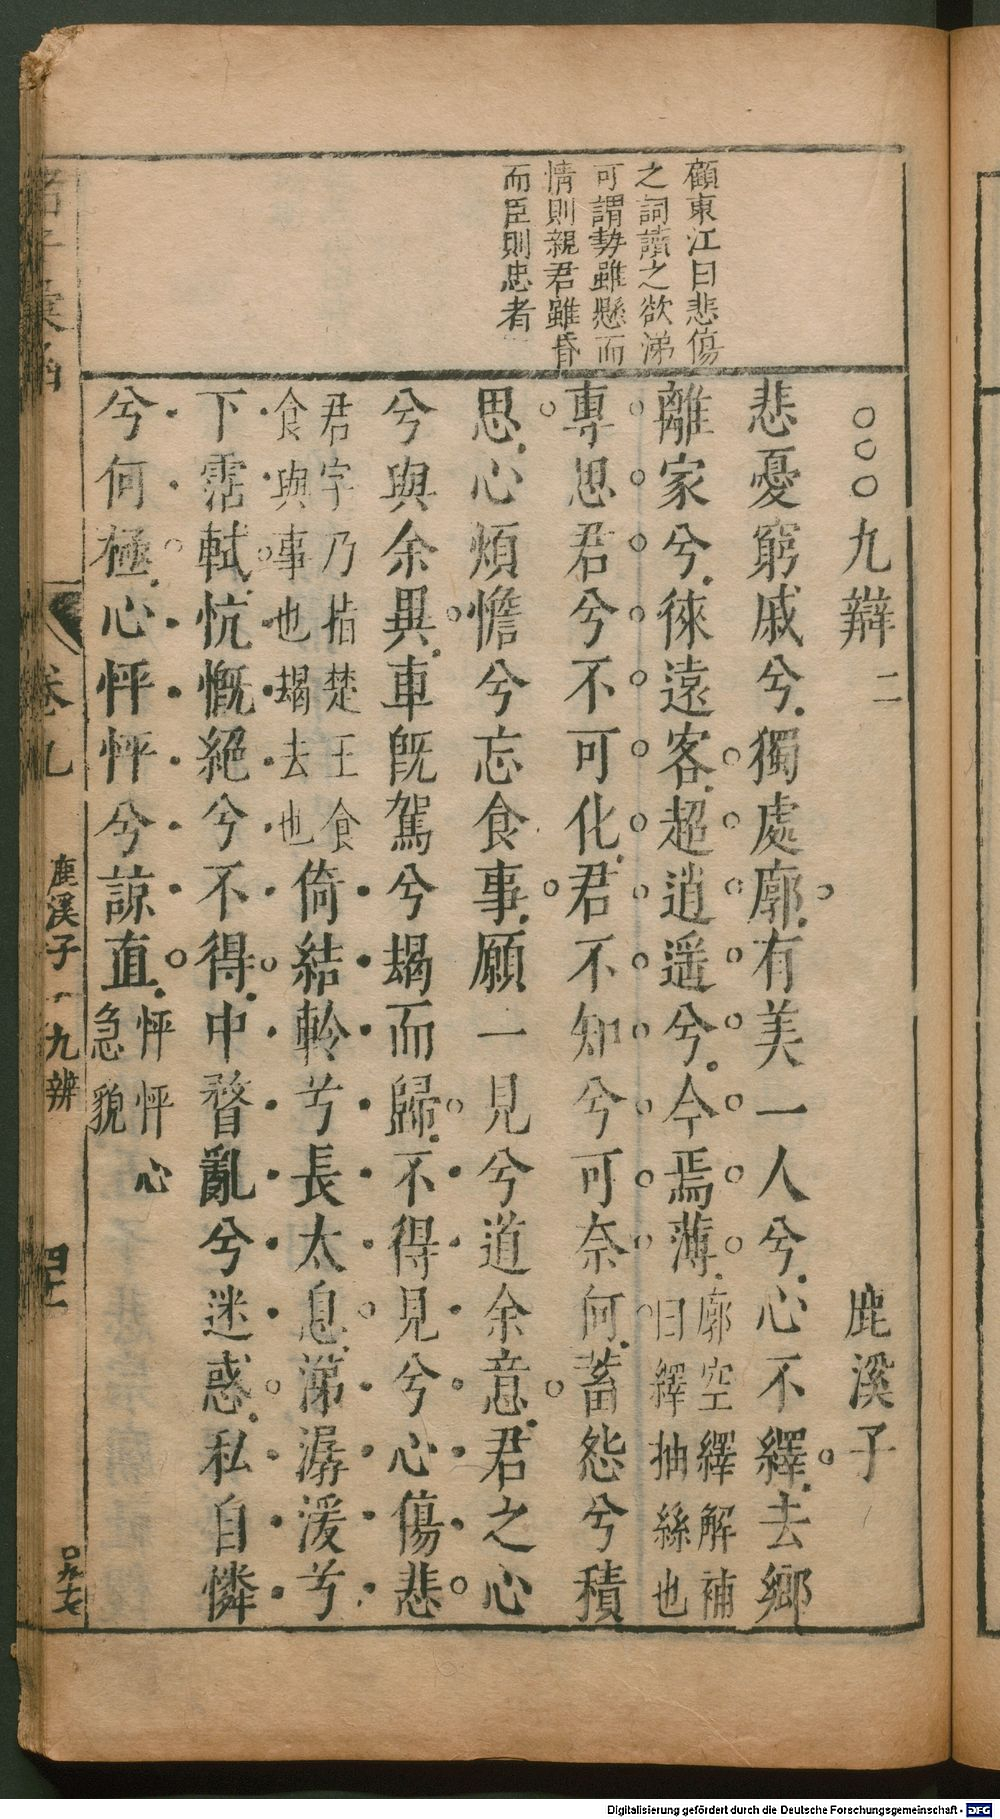 顧東江曰悲傷
之詞讀之欲涕
可謂勢雖懸而
情則親君雖昏
而臣則忠者
九辯二 鹿溪子
悲憂窮戚兮獨處廓有美一人兮心不繹去鄉
離家兮徠遠客超逍遥兮今焉薄廓空繹解補
曰繹抽絲也
專思君兮不可化君不知兮可奈何蓄怨兮積
思心煩憺兮忘食事願一見兮道余意君之心
兮與余異車旣駕兮朅而歸不得見兮心傷悲
君字乃指楚王食
食與事也朅去也倚結軨兮長太息涕潺湲兮
下霑軾忼慨絕兮不得中瞀亂兮迷惑私自憐
兮何極心怦怦兮諒直怦怦心
急貌
卷九
鹿溪子
九辨
Digitalisierung gefördert durch die Deutsche Forschungsgemeinschaft - DFG